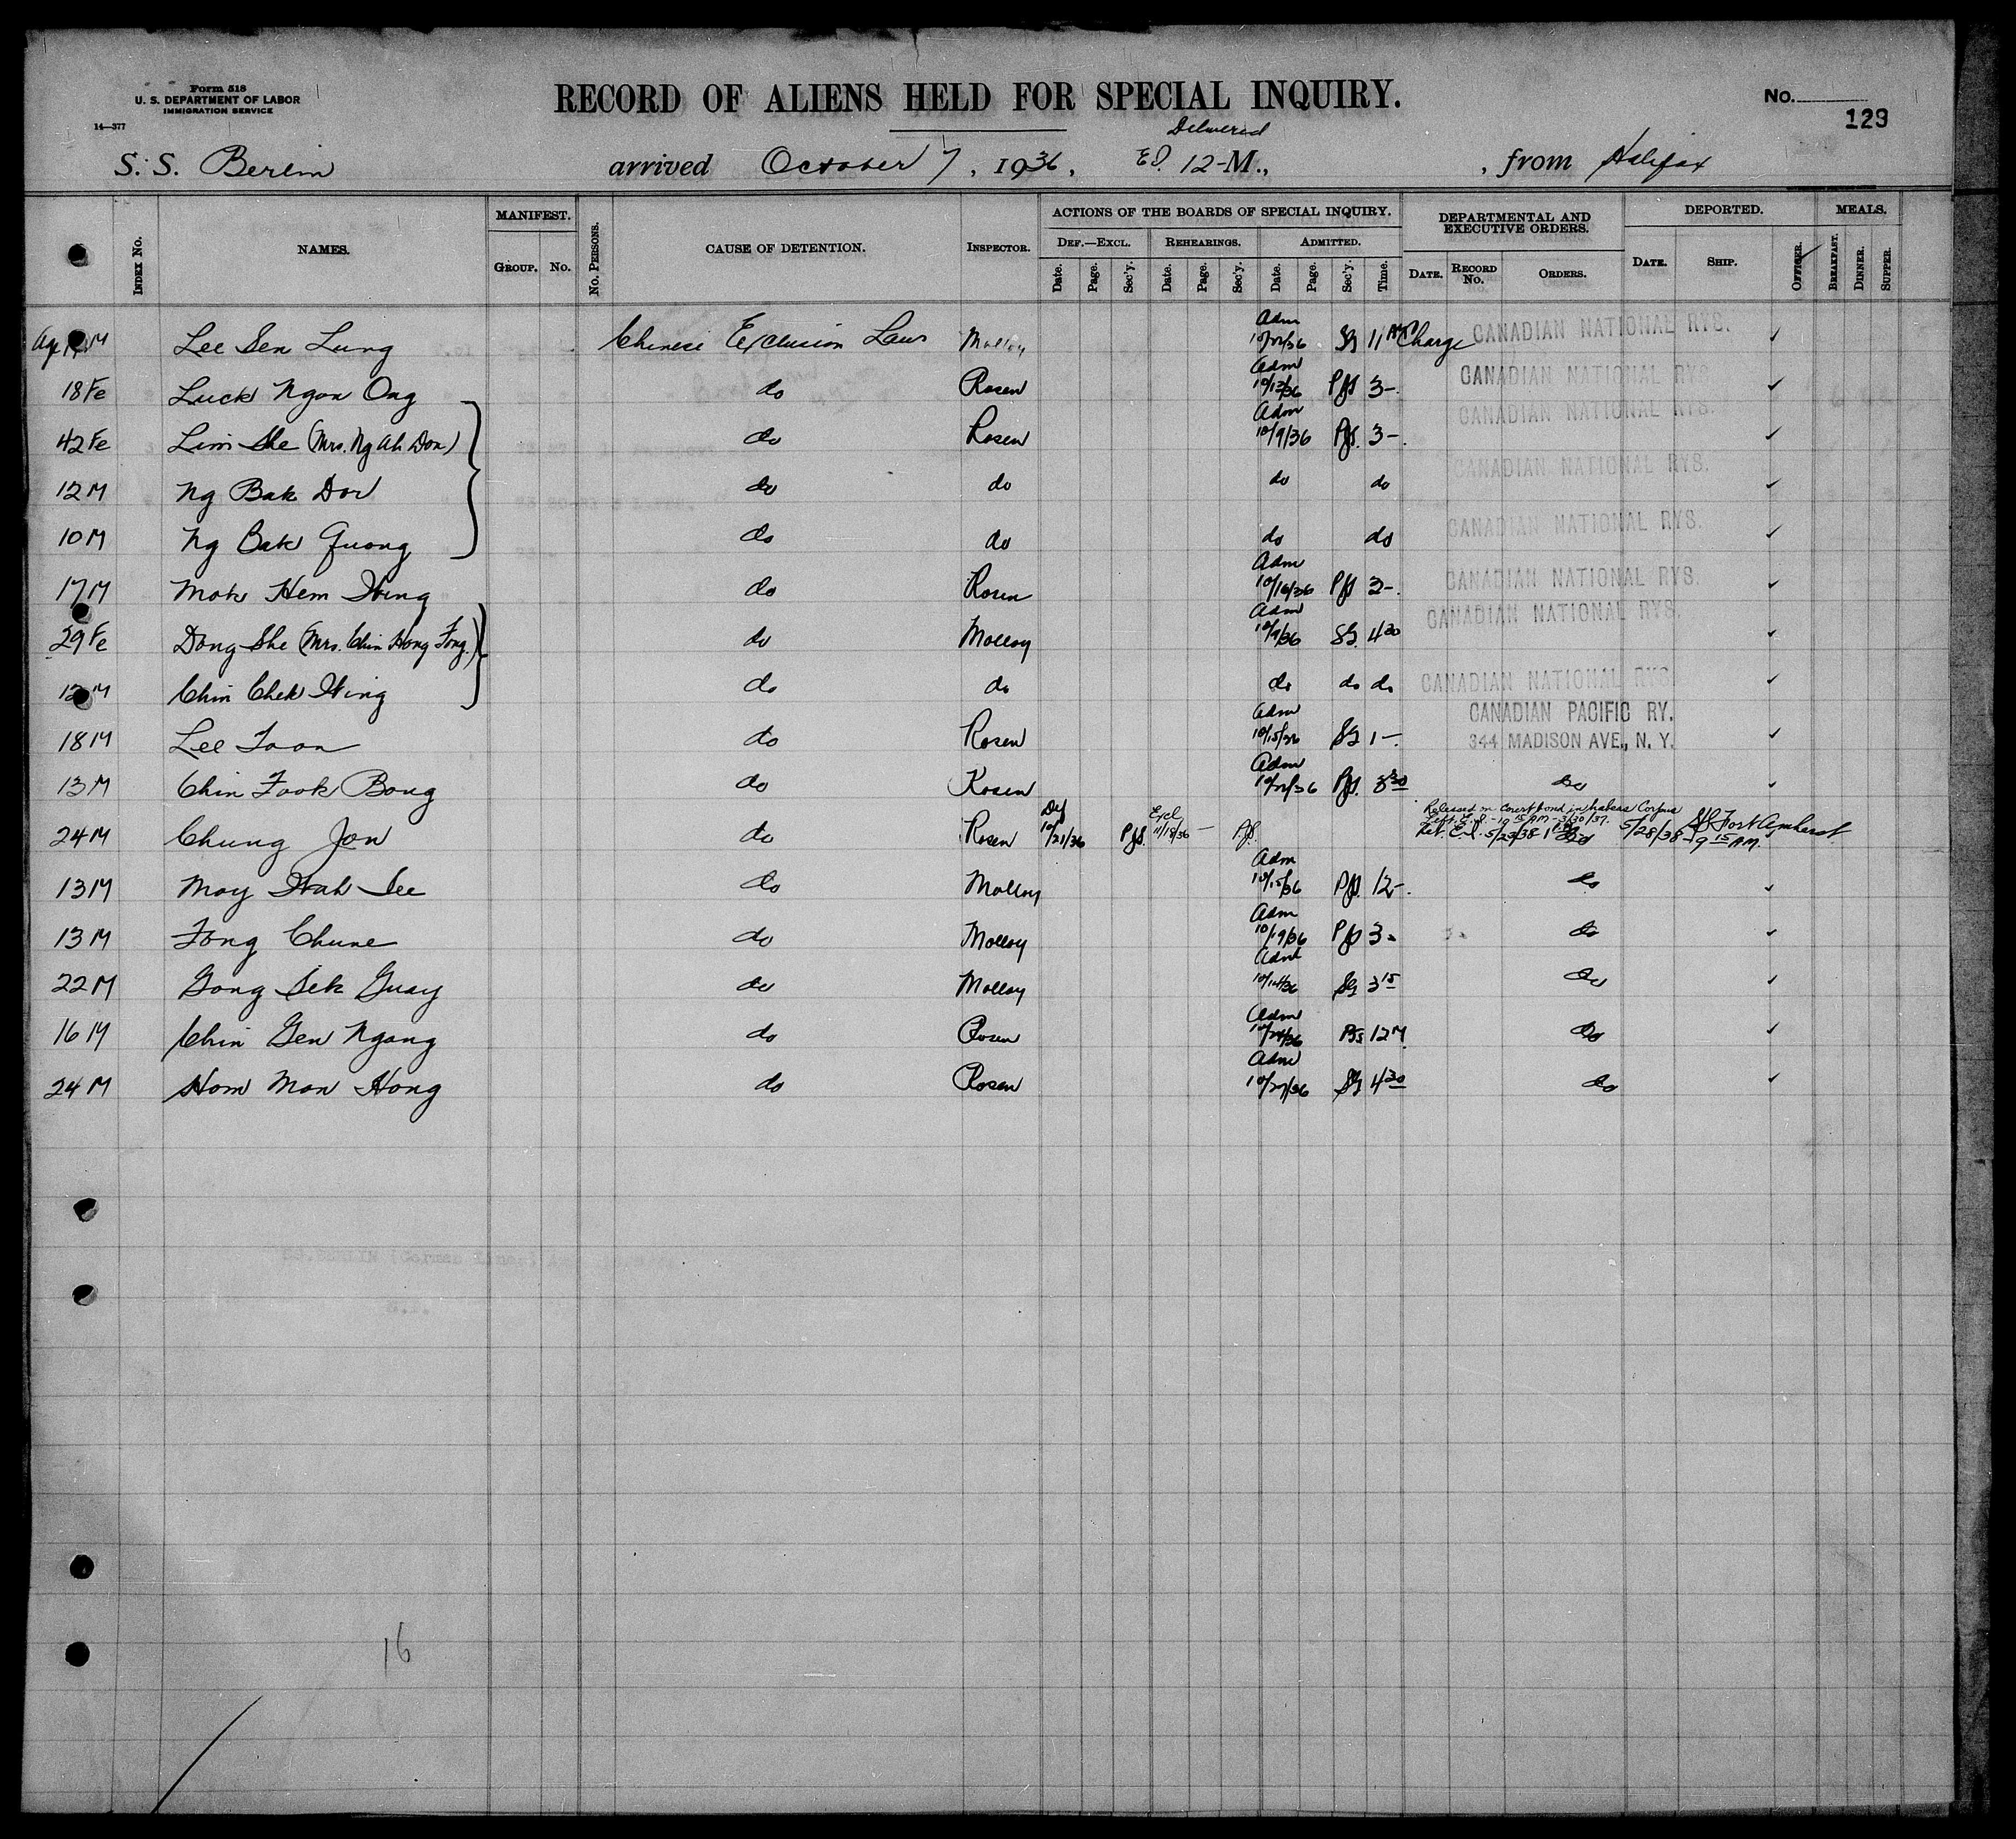 Form 518
U. S. DEPARTMENT OF LABOR
IMMIGRATION SERVICE
14—377
RECORD OF ALIENS HELD FOR SPECIAL INQUIRY.
No.
129
Delivered
S. S. Berlin arrived October 7, 1936, E.I. 12-M., , from Halifax
INDEX No.
NAMES.
MANIFEST.
GROUP. No.
No. PERSONS.
CAUSE OF DETENTION.
INSPECTOR.
ACTIONS OF THE BOARDS OF SPECIAL INQUIRY.
DEF.—EXCL. REHEARINGS. ADMITTED.
Date. Page. Sec'y. Date. Page. Sec'y. Date. Page. Sec'y. Time.
DEPARTMENTAL AND EXECUTIVE ORDERS.
DATE. RECORD No. ORDERS.
DEPORTED.
DATE. SHIP. OFFICER.
MEALS.
BREAKFAST. DINNER. SUPPER.
Age M Lee Sen Lung Chinese Exclusion Law Molloy Adm SG 11 AM Charge CANADIAN NATIONAL RYS. ✓
18 Fe Luck Ngon Ong do Rosen Adm 10/13/36 PJS 3-. CANADIAN NATIONAL RYS. ✓
42 Fe Lim She (Mrs. Ng Ah Don) do Rosen Adm 10/9/36 PJS. 3-. CANADIAN NATIONAL RYS. ✓
12 M Ng Bak Dor do do do do CANADIAN NATIONAL RYS. ✓
10 M Ng Bak Quong do do do do CANADIAN NATIONAL RYS. ✓
17 M Mok Hem Wing do Rosen Adm 10/16/36 PJS 2-. CANADIAN NATIONAL RYS. ✓
29 Fe Dong She (Mrs. Chin Hong Fong.) do Molloy Adm 10/9/36 SG. 4 30 CANADIAN NATIONAL RYS. ✓
12 M Chin Chek Wing do do do do do CANADIAN NATIONAL RYS. ✓
18 M Lee Toon do Rosen Adm 10/15/36 SG 1-. CANADIAN PACIFIC RY. 344 MADISON AVE., N. Y. ✓
13 M Chin Fook Bong do Rosen Adm PJS. 3 30 do ✓
Released on court bond in habeas Corpus
Left E.I. - 19 15 AM - 3/30/37.
24 M Chung Jon do Rosen Def 10/21/36 PJS. Excl 11/18/36 — PJS. Ret. E.I. 5/23/38 do 5/28/38 SS Fort Amherst 9 15 AM.
13 M Moy Wah See do Molloy Adm 10/15/36 PJS. 12-. do ✓
13 M Fong Chune do Molloy Adm 10/19/36 PJS 3- do ✓
22 M Gong Sek Guay do Molloy Adm 10/14/36 SG 3 15 do ✓
16 M Chin Gen Ngong do Rosen Adm PJS 12 M. do ✓
24 M Hom Mon Hong do Rosen Adm 10/27/36 SG 4 30 do ✓
16